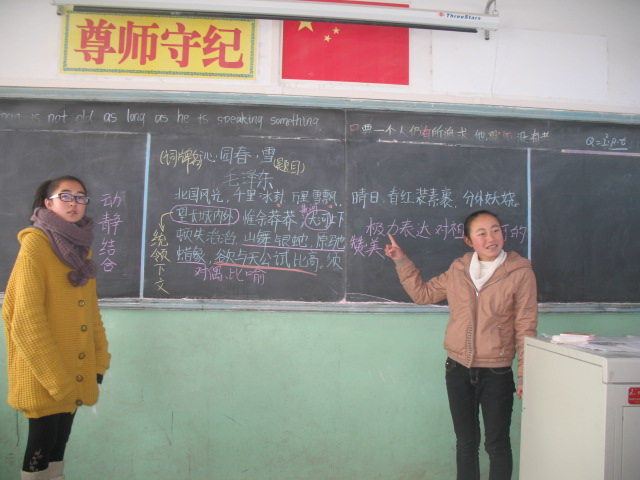 ThreeStars
尊师守纪
is not old as long as he is speaking something.
只要一个人仍有所追求,他就 没有老
(词牌名)沁园春·雪(题目)
毛泽东
北国风光,千里冰封,万里雪飘。
望长城内外,惟余莽莽,大河上下
顿失滔滔。山舞银蛇,原驰
蜡象,欲与天公试比高。须
晴日,看红装素裹,分外妖娆。
动静结合
统领下文
对偶 比喻
极力表达对祖 的
赞美